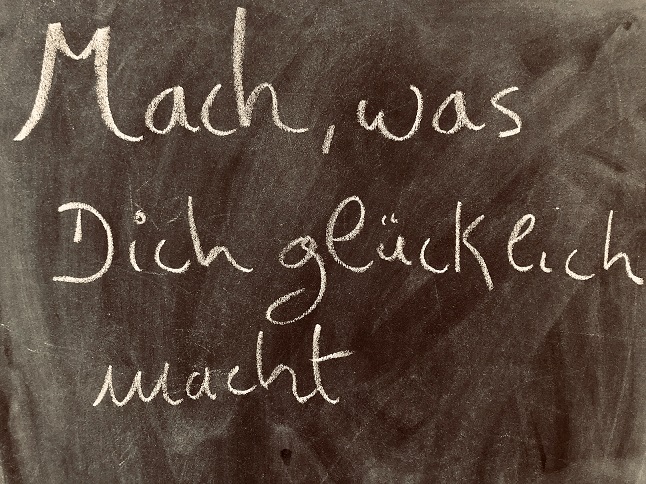 Mach, was
Dich glücklich
macht